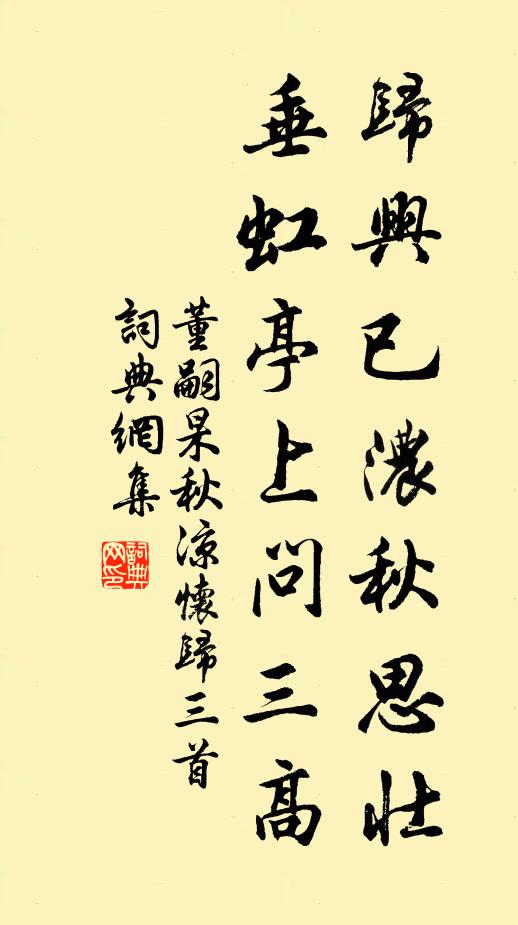 歸興已濃秋思壯
垂虹亭上問三高
董嗣杲秋涼懷歸三首
詞典網集
詞典網印